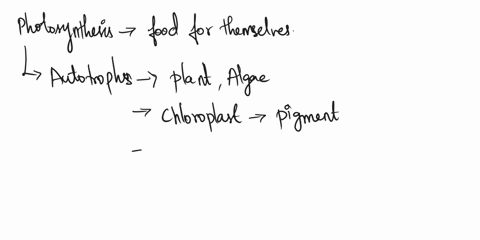 Photosynthesis → food for themselves.
↳ Autotrophs → plant, Algae
→ Chloroplast → pigment
–